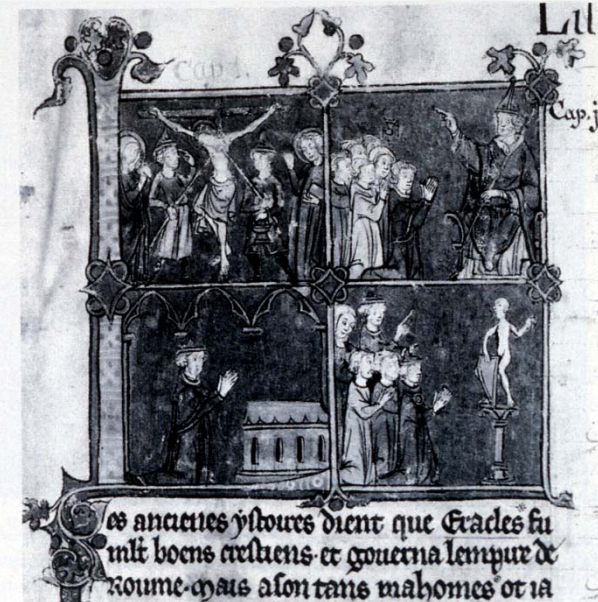 Lil
Cap. j.
Cap. j
Les anciences ystoires dient que Eracles fu
mlt boens crestiens et gouverna lempire de
Roume. Mais a son tans mahomes ot ia